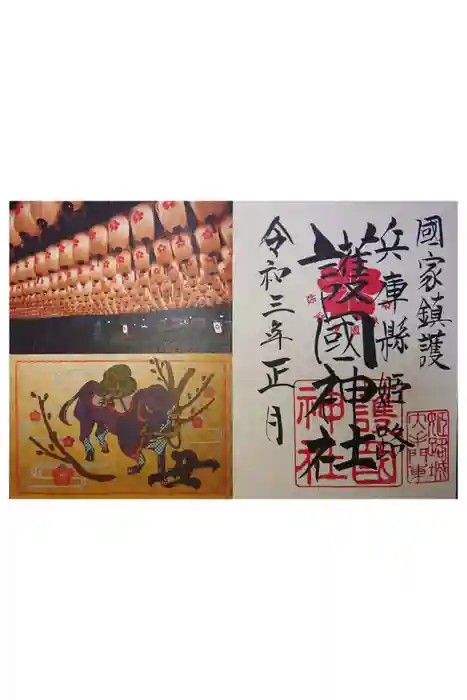 國家鎮護
兵庫縣姫路
護國神社
令和三年正月
護國
神社
姫路城
大手門東
丑